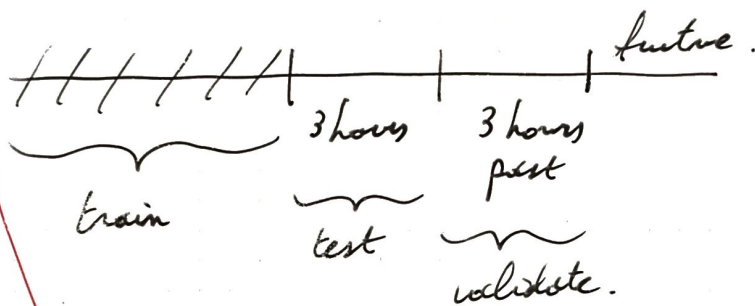 future.
3 hours
3 hours
past
train
test
validate.